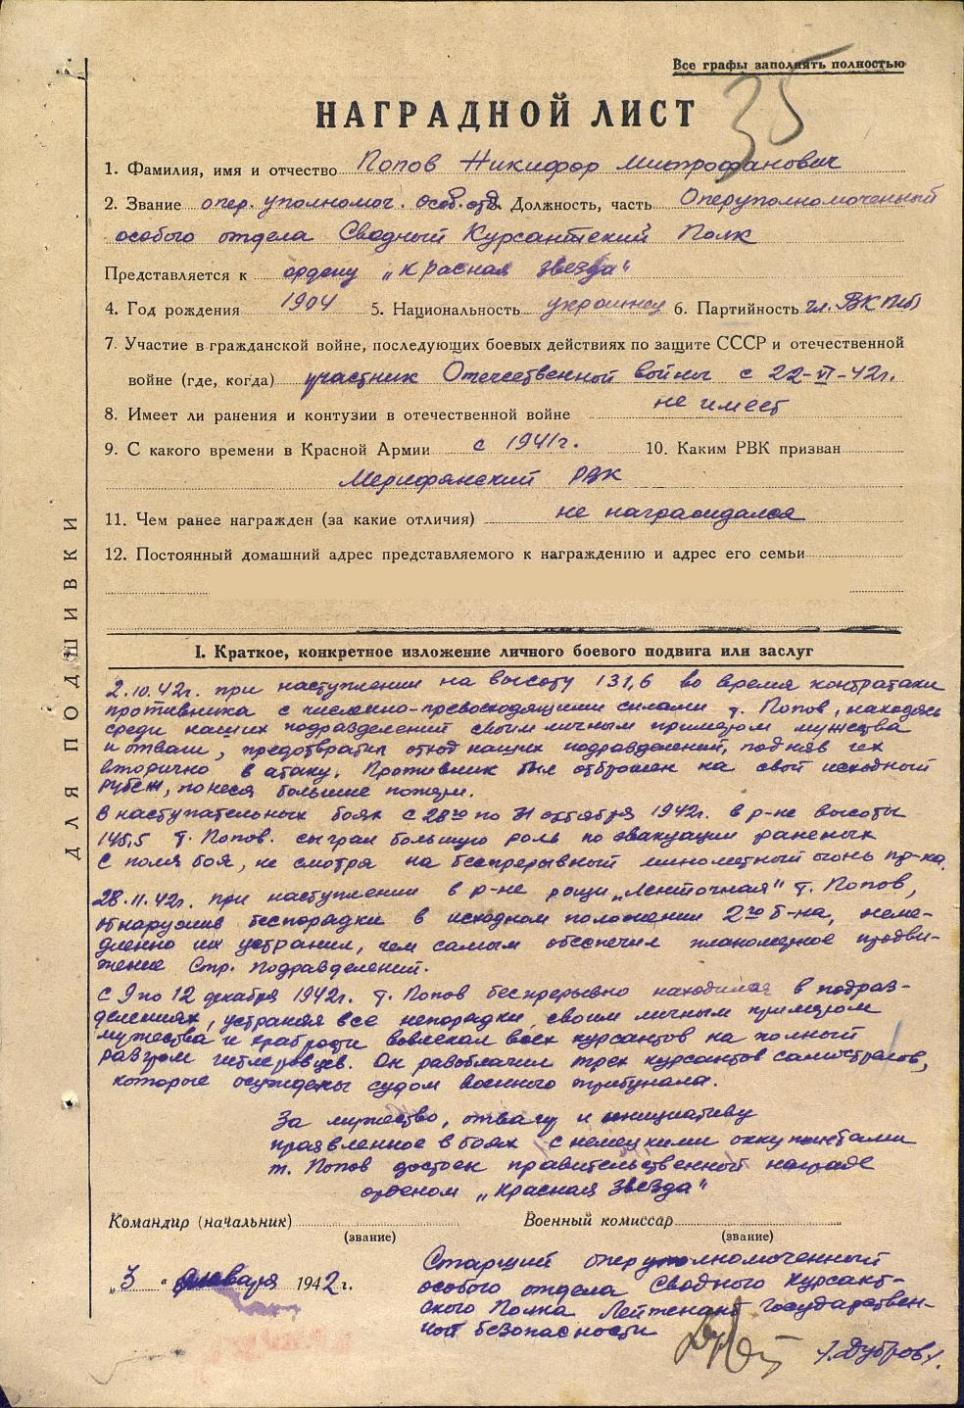 Все графы заполнять полностью
35
НАГРАДНОЙ ЛИСТ
1. Фамилия, имя и отчество Попов Никифор Митрофанович
2. Звание опер. уполномоч. особ. отд. Должность, часть Оперуполномоченный
особого отдела Сводный Курсантский Полк
Представляется к ордену „Красная звезда"
4. Год рождения 1904 5. Национальность украинец 6. Партийность чл. ВКП(б)
7. Участие в гражданской войне, последующих боевых действиях по защите СССР и отечественной
войне (где, когда) участник Отечественной войны с 22-VI-42г.
8. Имеет ли ранения и контузии в отечественной войне не имеет
9. С какого времени в Красной Армии с 1941г. 10. Каким РВК призван
Мерефянский РВК
11. Чем ранее награжден (за какие отличия) не награждался
12. Постоянный домашний адрес представляемого к награждению и адрес его семьи
ДЛЯ ПОДШИВКИ
I. Краткое, конкретное изложение личного боевого подвига или заслуг
2.10.42г. при наступлении на высоту 131,6 во время контратаки
противника с численно-превосходящими силами т. Попов, находясь
среди наших подразделений своим личным примером мужества
и отваги, предотвратил отход наших подразделений, подняв их
вторично в атаку. Противник был отброшен на свой исходный
рубеж, понеся большие потери.
В наступательных боях с 28го по 31 октября 1942г. в р-не высоты
145,5 т. Попов. сыграл большую роль по эвакуации раненых
с поля боя, не смотря на беспрерывный минометный огонь пр-ка.
28.11.42г. при наступлении в р-не рощи „Ленточная" т. Попов,
обнаружив беспорядки в исходном положении 2го б-на, неме-
дленно их устранил, чем самым обеспечил планомерное продви-
жение Стр. Подразделений.
С 9 по 12 декабря 1942г. т. Попов беспрерывно находился в подраз-
делениях, устраняя все непорядки, своим личным примером
мужества и храбрости вовлекал всех курсантов на полный
разгром гитлеровцев. Он разоблачил трех курсантов самострелов,
которые осуждены судом военного трибунала.
За мужество, отвагу и инициативу
проявленное в боях с немецкими оккупантами
т. Попов достоен правительственной награде
орденом „Красная Звезда"
Командир (начальник) Военный комиссар
(звание) (звание)
„3" января 1942г.
Старший оперуполномоченный
особого отдела Сводного Курсант-
ского Полка Лейтенант государствен-
ной безопасности
/Дубров/.